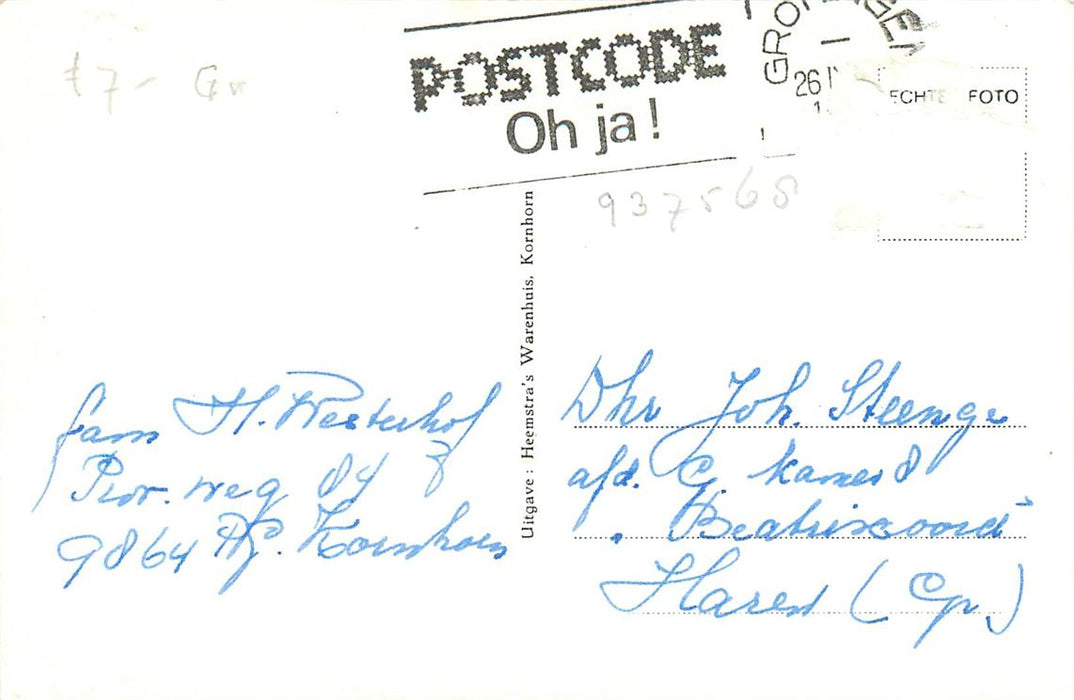 POSTCODE
Oh ja!
ECHTE FOTO
937568
Uitgave: Heemstra's Warenhuis, Kornhorn
fam H. Westerhof
Prov. weg 84
9864 Kornhorn
Dhr Joh. Steenge
afd. G. kamer 8
Beatrixoord
Haren (Gr)